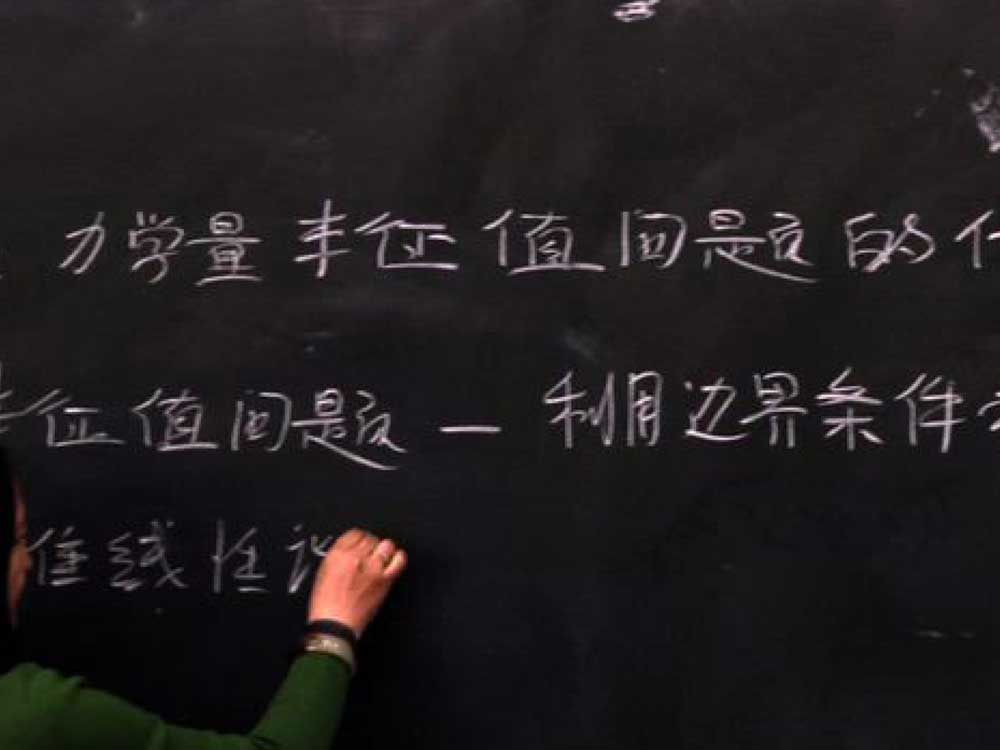 力学量本征值问题的
本征值问题 — 利用边界条件
维线性谐